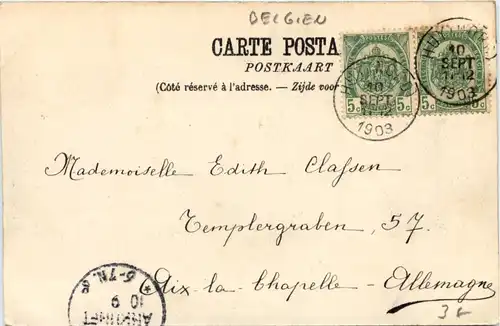 BELGIEN
CARTE POSTA
POSTKAART
(Côté réservé à l'adresse. — Zijde voor
5c 5c
5c 5c
HUY (NORD)
10
SEPT
11-12
1903
10
SEPT
11-12
1903
Mademoiselle Edith Classen
Templergraben, 57.
Aix-la-Chapelle - Allemagne
6-7N.
10 9
ANKUNFT
3€